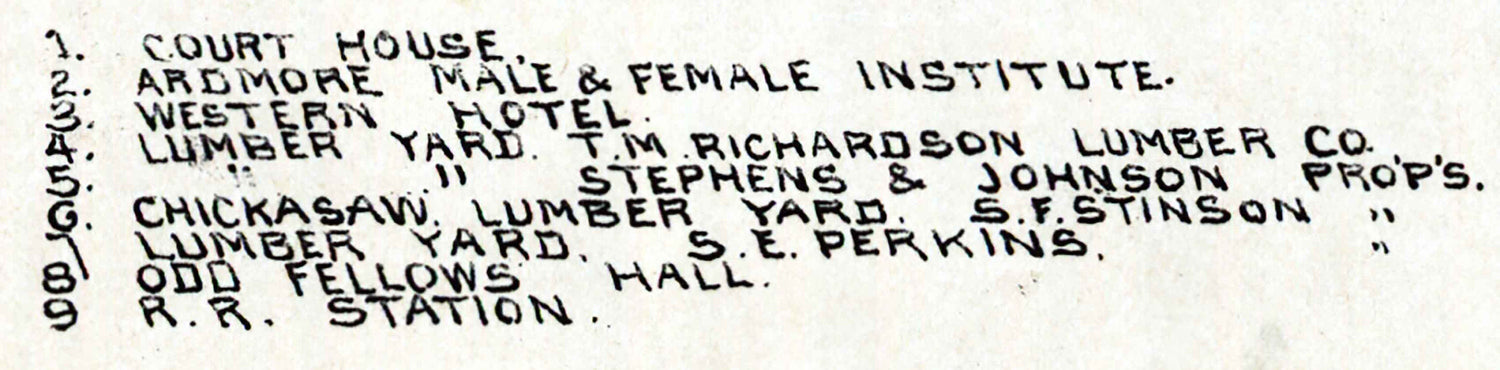 1. COURT HOUSE.
2. ARDMORE MALE & FEMALE INSTITUTE.
3. WESTERN HOTEL.
4. LUMBER YARD. T.M. RICHARDSON LUMBER CO.
5. " " STEPHENS & JOHNSON PROP'S.
6. CHICKASAW. LUMBER YARD. S.F. STINSON "
7 LUMBER YARD. S.E. PERKINS. "
8 ODD FELLOWS HALL.
9 R.R. STATION.